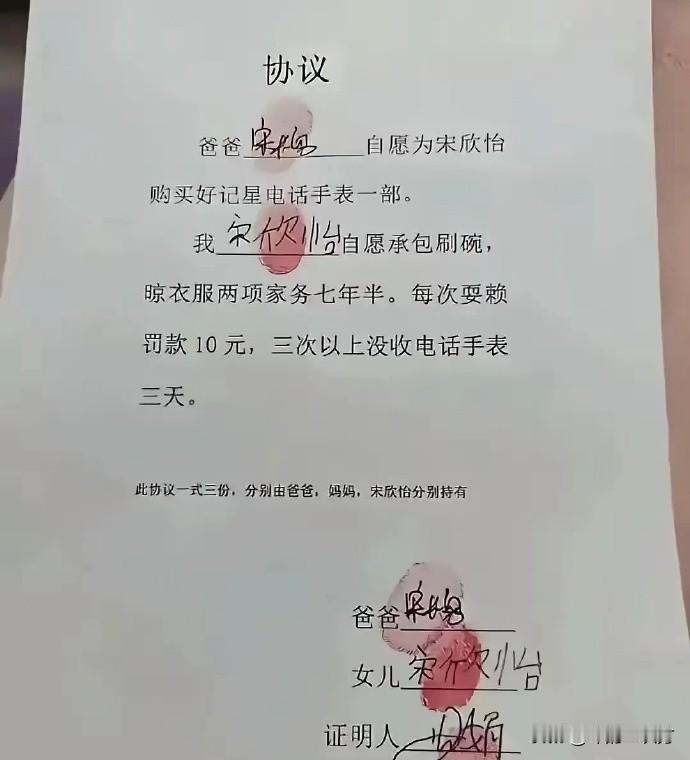 协议
爸爸 自愿为宋欣怡
购买好记星电话手表一部。
我宋欣怡自愿承包刷碗，
晾衣服两项家务七年半。每次耍赖
罚款10元，三次以上没收电话手表
三天。
此协议一式三份，分别由爸爸，妈妈，宋欣怡分别持有
爸爸宋
女儿宋欣怡
证明人